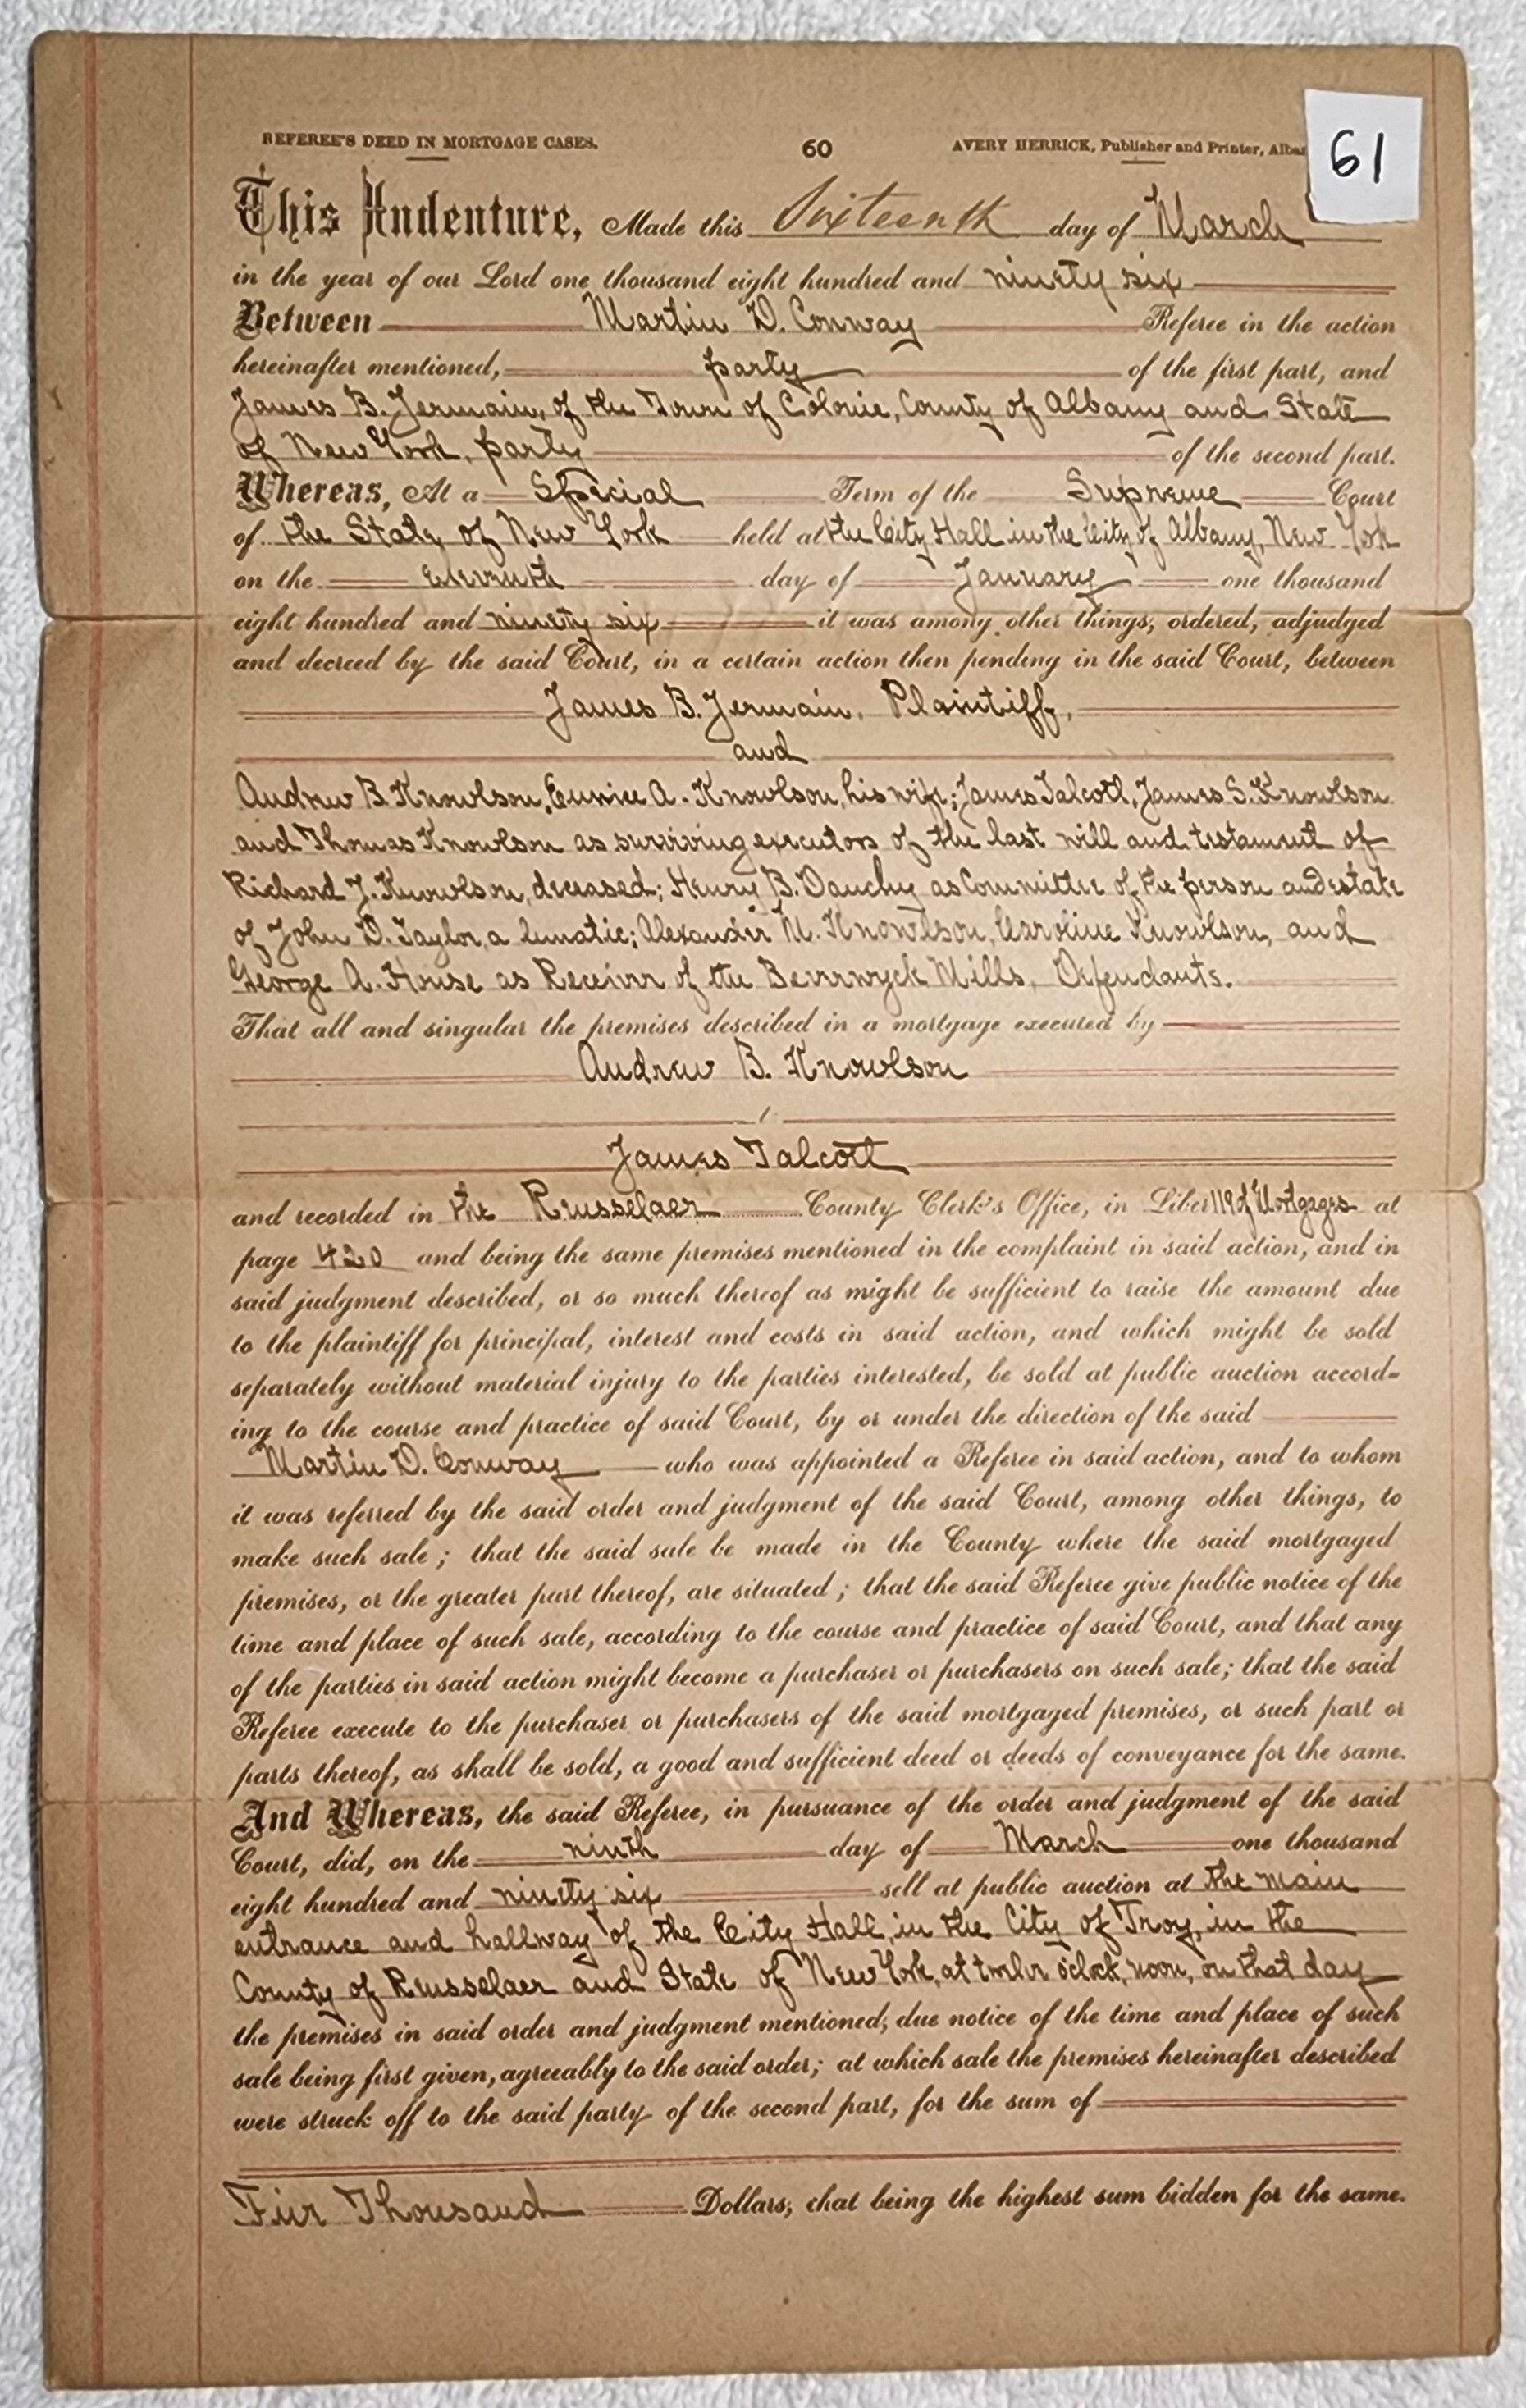 REFEREE'S DEED IN MORTGAGE CASES. 60 AVERY HERRICK, Publisher and Printer,
61
This Indenture, Made this Sixteenth day of March
in the year of our Lord one thousand eight hundred and ninety six
Between Martin D. Conway Referee in the action
hereinafter mentioned, party of the first part, and
James B. Jermain, of the Town of Colonie, County of Albany and State
of New York, party of the second part.
Whereas, At a Special Term of the Supreme Court
of the State of New York held at the City Hall in the City of Albany, New York
on the Eleventh day of January one thousand
eight hundred and ninety six it was among other things, ordered, adjudged
and decreed by the said Court, in a certain action then pending in the said Court, between
James B. Jermain, Plaintiff,
and
Andrew B Knowlson, Eunice A. Knowlson, his wife; James Talcott, James S. Knowlson
and Thomas Knowlson as surviving executors of the last will and testament of
Richard J. Knowlson, deceased; Henry B. Dauchy as Committee of the person and estate
of John D. Taylor, a lunatic; Alexander M. Knowlson, Caroline Knowlson, and
George A. House as Receiver of the Beverwyck Mills, Defendants.
That all and singular the premises described in a mortgage executed by
Andrew B. Knowlson
James Talcott
and recorded in the Rensselaer County Clerk's Office, in Liber 119 of Mortgages at
page 420 and being the same premises mentioned in the complaint in said action, and in
said judgment described, or so much thereof as might be sufficient to raise the amount due
to the plaintiff for principal, interest and costs in said action, and which might be sold
separately without material injury to the parties interested, be sold at public auction accord-
ing to the course and practice of said Court, by or under the direction of the said
Martin D. Conway who was appointed a Referee in said action, and to whom
it was referred by the said order and judgment of the said Court, among other things, to
make such sale; that the said sale be made in the County where the said mortgaged
premises, or the greater part thereof, are situated; that the said Referee give public notice of the
time and place of such sale, according to the course and practice of said Court, and that any
of the parties in said action might become a purchaser or purchasers on such sale; that the said
Referee execute to the purchaser or purchasers of the said mortgaged premises, or such part or
parts thereof, as shall be sold, a good and sufficient deed or deeds of conveyance for the same.
And Whereas, the said Referee, in pursuance of the order and judgment of the said
Court, did, on the ninth day of March one thousand
eight hundred and ninety six sell at public auction at the main
entrance and hallway of the City Hall, in the City of Troy, in the
County of Rensselaer and State of New York, at twelve o'clock, noon, on that day
the premises in said order and judgment mentioned, due notice of the time and place of such
sale being first given, agreeably to the said order; at which sale the premises hereinafter described
were struck off to the said party of the second part, for the sum of
Thousand Dollars, that being the highest sum bidden for the same.